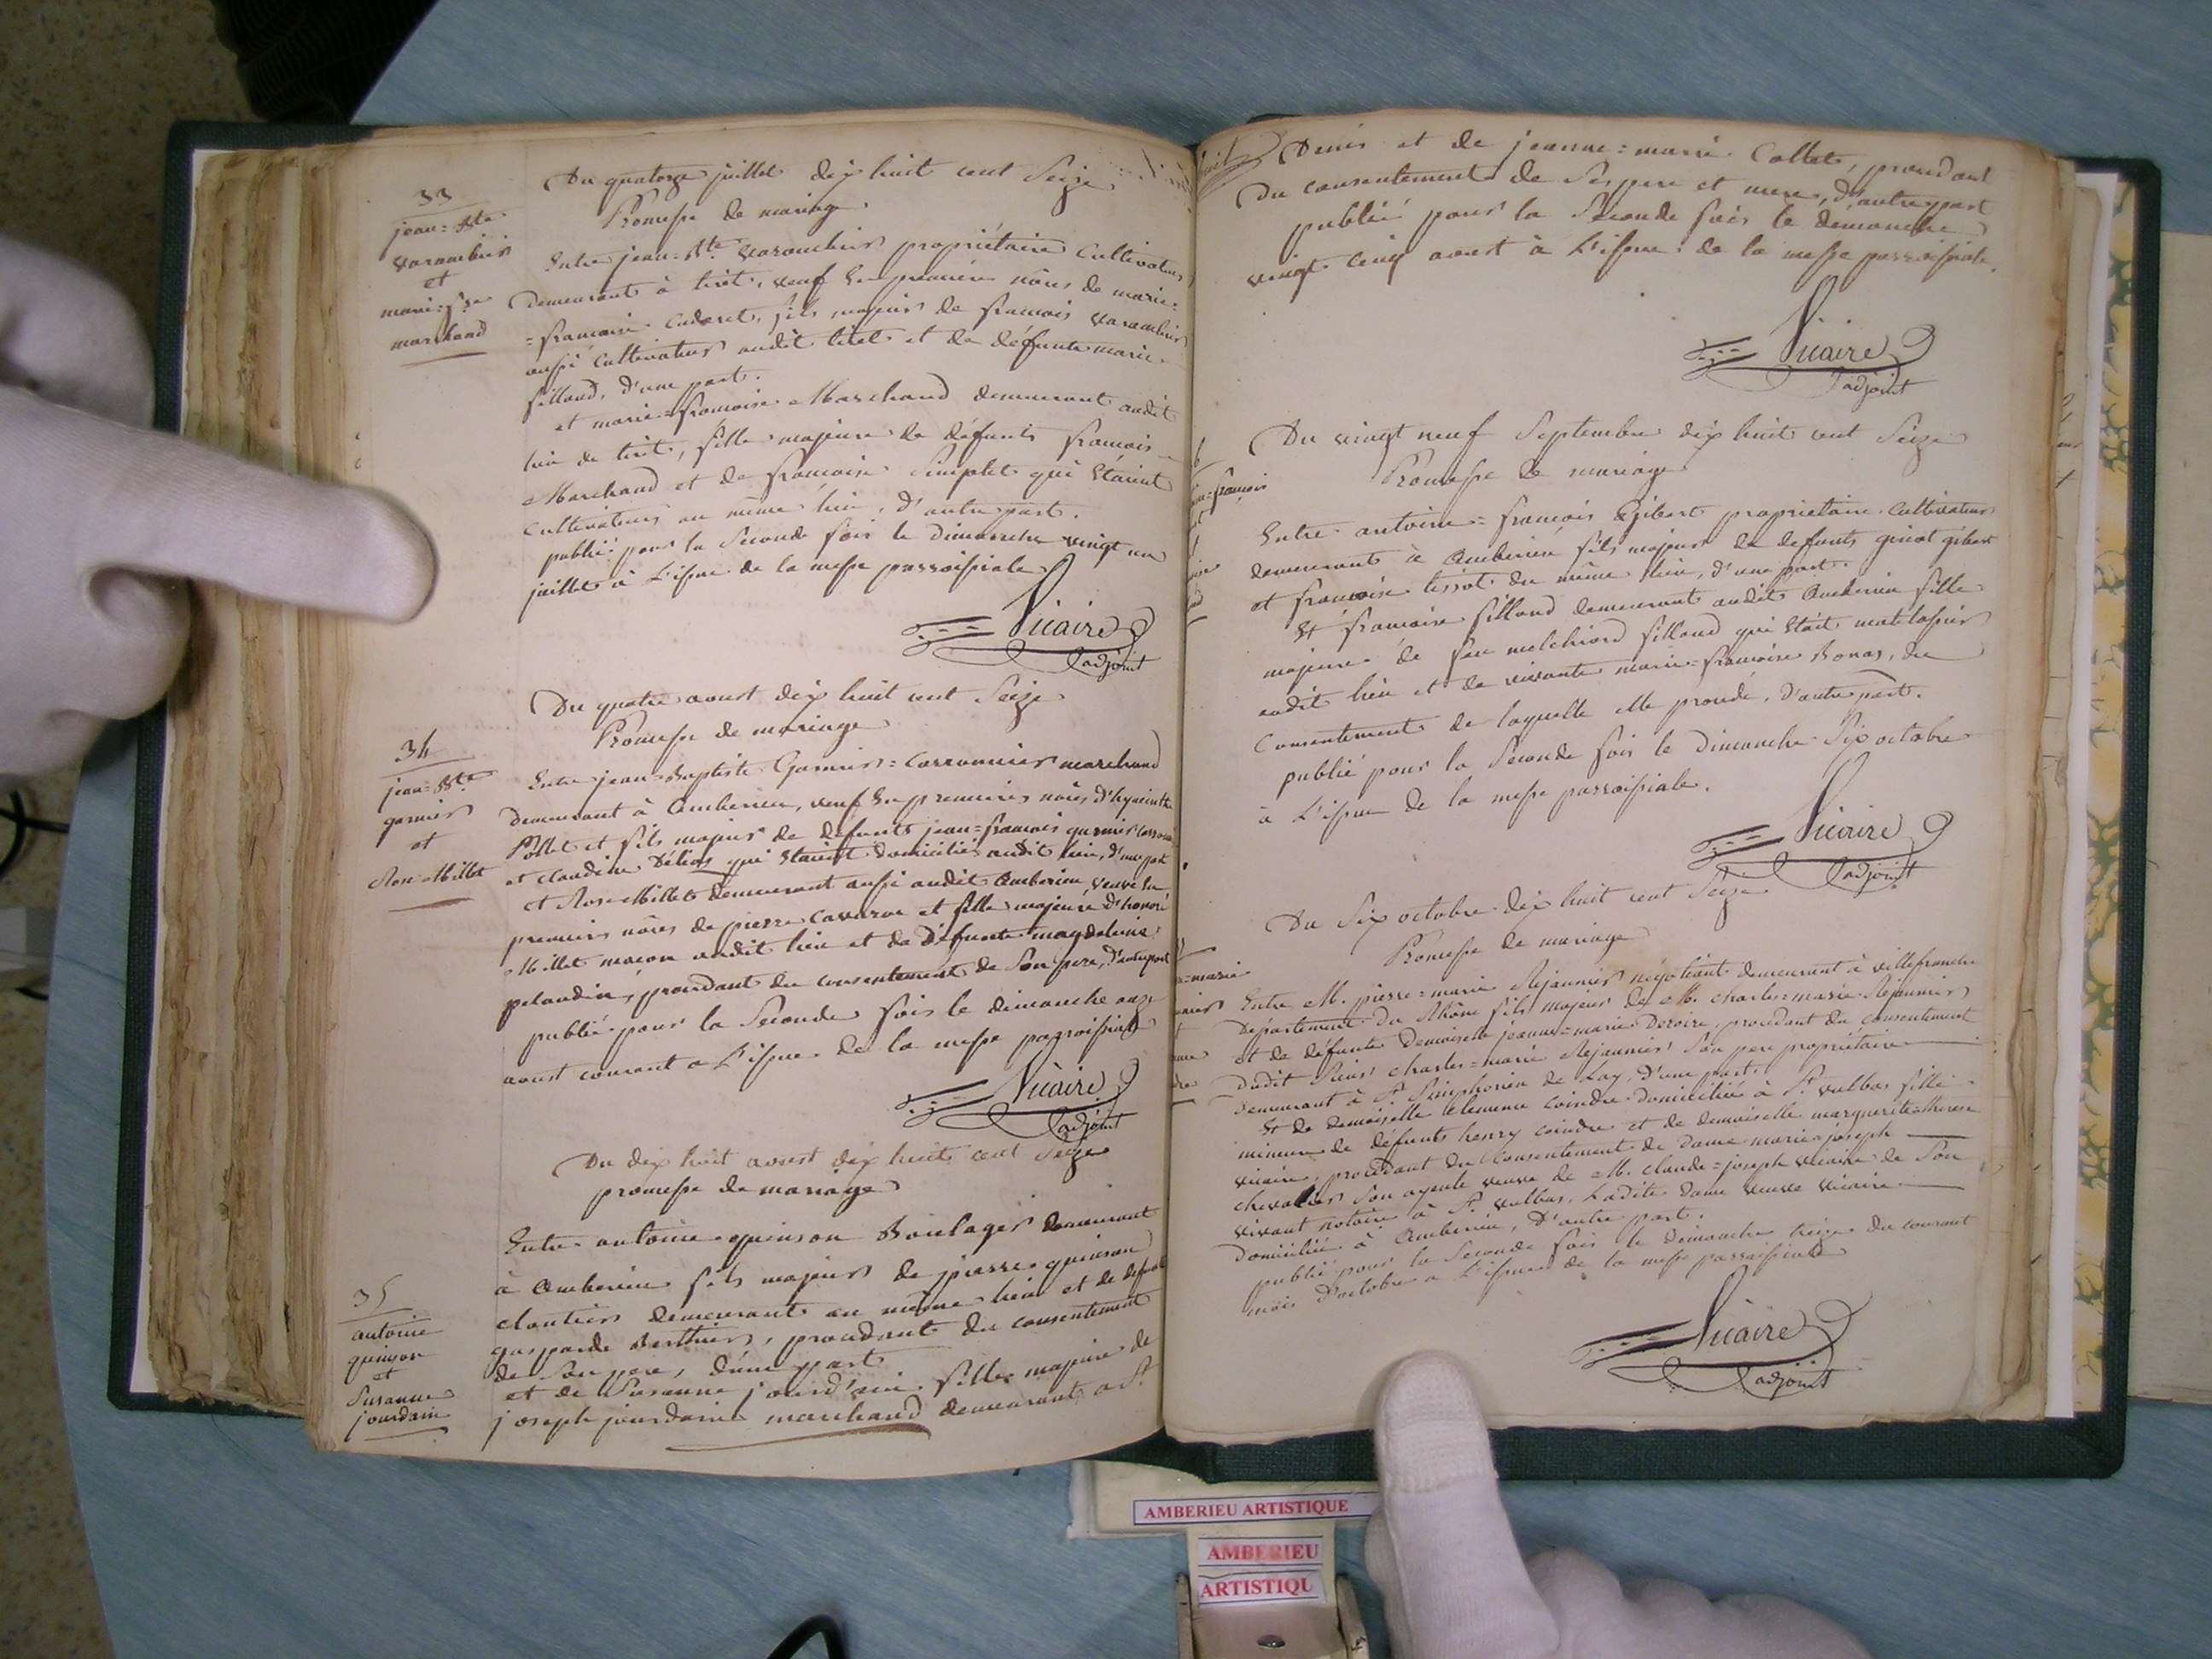 33
jean=Bte
varambier
et
marie=fse
marchand
Du quatorze juillet dix huit cent Seize
Promesse de mariage
Entre jean=Bte. varambier propriétaire Cultivateur
demeurant à tiret, veuf en premier nôces de marie=
=françoise Cudoret, fils majeur de françois varambier
aussi Cultivateur audit tiret et de défunte marie
fillond, d'une part.
et marie=françoise Marchand demeurant audit
lieu de tiret, fille majeure de défunts françois
Marchand et de françoise Simplet qui étaient
Cultivateurs au même lieu, d'autre part.
publié pour la Seconde fois le Dimanche vingt un
juillet à L'issue de la messe parroissiale
Vicaire
adjoint
34
jean=Bte
garnier
et
Rose Millet
Du quatre aoust dix huit cent Seize
Promesse de mariage
Entre jean=Baptiste Garnier=Carronnier marchand
demeurant à Amberieu, veuf en premiers nôces d'hyacinthe
Pollet et fils majeur de défunts jean=francois garnier
et claudine Délios qui étaient domiciliés audit lieu, d'une part
et Rose Millet demeurant aussi audit Amberieu veuve en
premiers nôces de pierre Cavaroz et fille majeure d'honoré
Millet maçon audit lieu et de défunte magdeleine
pelaudin, procedant du consentement de Son pere, d'autre part
publié pour la Seconde fois le dimanche onze
aoust courant a L'issue de la messe parroissiale
Vicaire
adjoint
35
antoine
quinson
et
Susanne
jourdain
Du dix huit aoust dix huit cent Seize
promesse de mariage
Entre antoine quinson Boulager demeurant
à Amberieu fils majeur de pierre quinson
cloutier demeurant au même lieu et de defunte
gasparde Berthier, procedant du consentement
de Son pere, d'une part
et de Susanne jourd'ain fille majeure de
joseph jourdain marchand demeurant a St
Denis et de jeanne=marie Collet, procedant
du consentement de Ses pere et mere, d'autre part
publié pour la Seconde fois le dimanche
vingt cinq aoust à L'issue de la messe parroissiale.
Vicaire
adjoint
=françois
Du vingt neuf Septembre dix huit cent Seize
Promesse de mariage
Entre antoine=françois Gibert proprietaire Cultivateur
demeurant à Amberieu fils majeur de defunts gibert
et françoise tissot du même lieu, d'une part.
Et françoise fillond demeurant audit Amberieu fille
majeure de feu melchiord fillond qui était matelassier
audit lieu et de vivante marie=françoise Bonaz, du
Consentement de laquelle elle procede, d'autre part.
publié pour la Seconde fois le Dimanche Six octobre
à L'issue de la messe parroissiale.
Vicaire
adjoint
=marie
Du Six octobre dix huit cent Seize
Promesse de mariage
Entre M. pierre=marie Rejaunier négotiant demeurant à villefranche
Département du Rhône fils majeur de M. charles=marie Rejaunier
et de défunte Demoiselle jeanne=marie Deroire, procedant du consentement
dudit Sieur charles=marie Rejaunier Son pere propriétaire
demeurant à St Simphorien de Lay, d'une part.
Et de demoiselle Clemence Coindre domiciliée à St. vulbas fille
mineure de défunts henry coindre et de demoiselle marguerite=therese
vicaire, procedant du Consentement de Dame marie=joseph
chevalier Son ayeule veuve de M. claude=joseph vicaire de Son
vivant notaire à St. vulbas, Ladite dame veuve vicaire
domiciliée à Amberieu, d'autre part.
publié pour la Seconde fois le dimanche treize du courant
mois d'octobre a L'issue de la messe parroissiale
Vicaire
adjoint
AMBERIEU ARTISTIQUE
AMBERIEU
ARTISTIQU